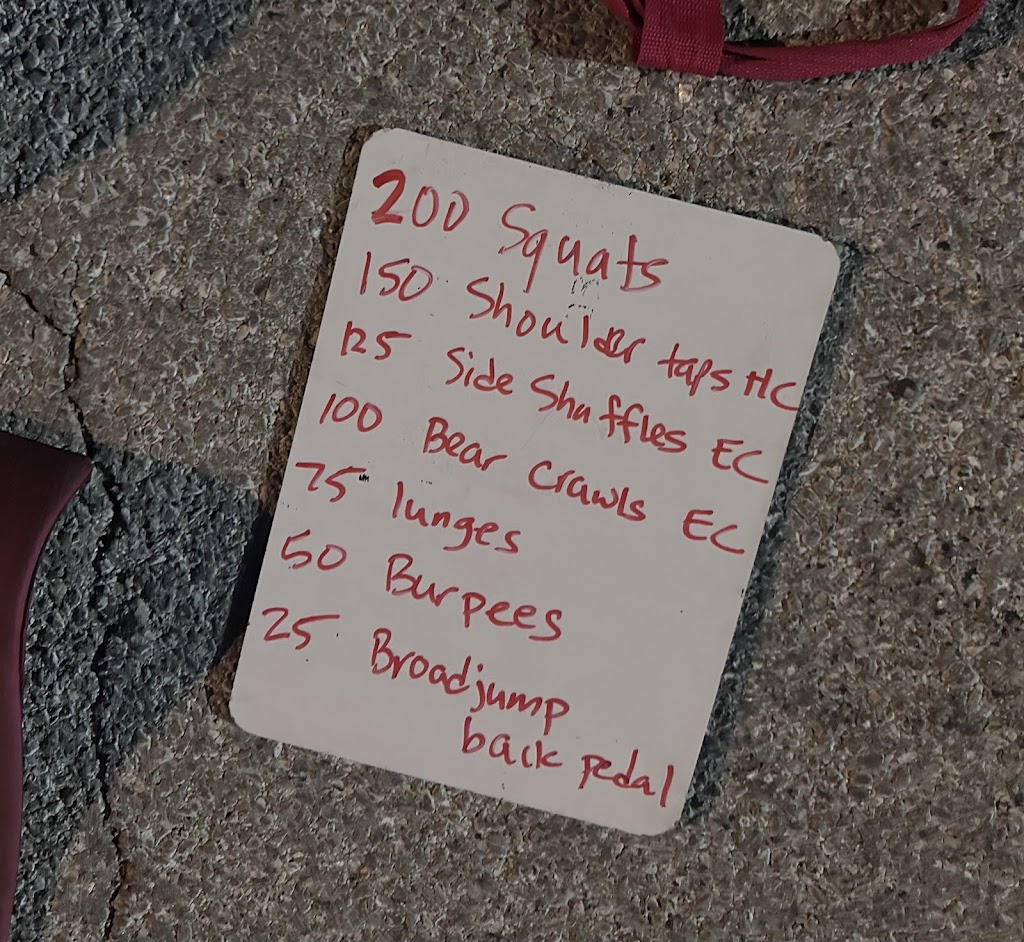 200 Squats
150 Shoulder taps HC
125 Side Shuffles EC
100 Bear Crawls EC
75 lunges
50 Burpees
25 Broadjump
back pedal